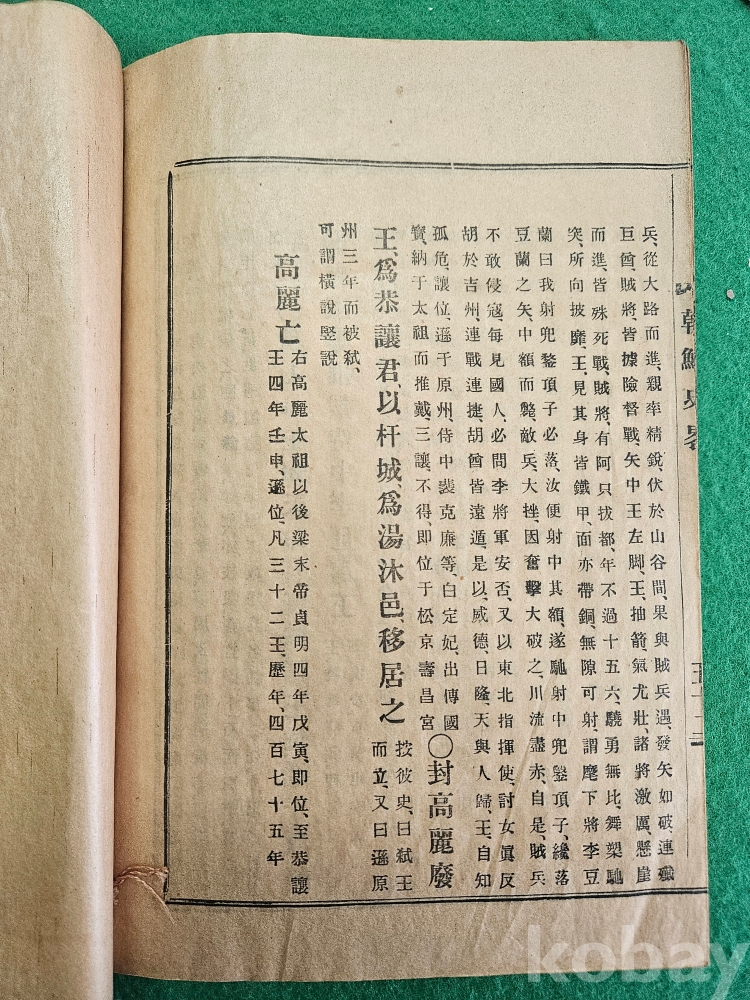 朝鮮史畧
五十二
兵、從大路而進、親率精銳、伏於山谷間、果與賊兵遇、發矢如破、連殲
巨酋、賊將、皆據險督戰、矢中王左脚、王、抽箭氣尤壯、諸將激厲、懸崖
而進、皆殊死戰、賊將、有阿只拔都、年不過十五六、驍勇無比、舞槊馳
突、所向披靡、王、見其身皆鐵甲、面亦帶銅、無隙可射、謂麾下將李豆
蘭曰我射兜鍪頂子必落、汝便射中其額、遂馳射中兜鍪頂子、纔落
豆蘭之矢、中額而斃、敵兵、大挫、因奮擊大破之、川流盡赤、自是、賊兵
不敢侵寇、每見國人、必問李將軍安否、又以東北指揮使、討女眞反
胡於吉州、連戰連捷、胡酋皆遠遁、是以、威德、日隆、天與人歸、王、自知
孤危、讓位、遜于原州、侍中裴克廉等、白定妃、出傳國
寶、納于太祖而推戴三讓、不得、即位于松京壽昌宮
〇封高麗廢
王、爲恭讓君、以杆城、爲湯沐邑、移居之
按彼史、曰弒王
而立、又曰遜原
州三年而被弒、
可謂橫說竪說
高麗亡
右高麗太祖以後梁末帝貞明四年戊寅、即位、至恭讓
王四年壬申、遜位、凡三十二王、歷年、四百七十五年
kobay